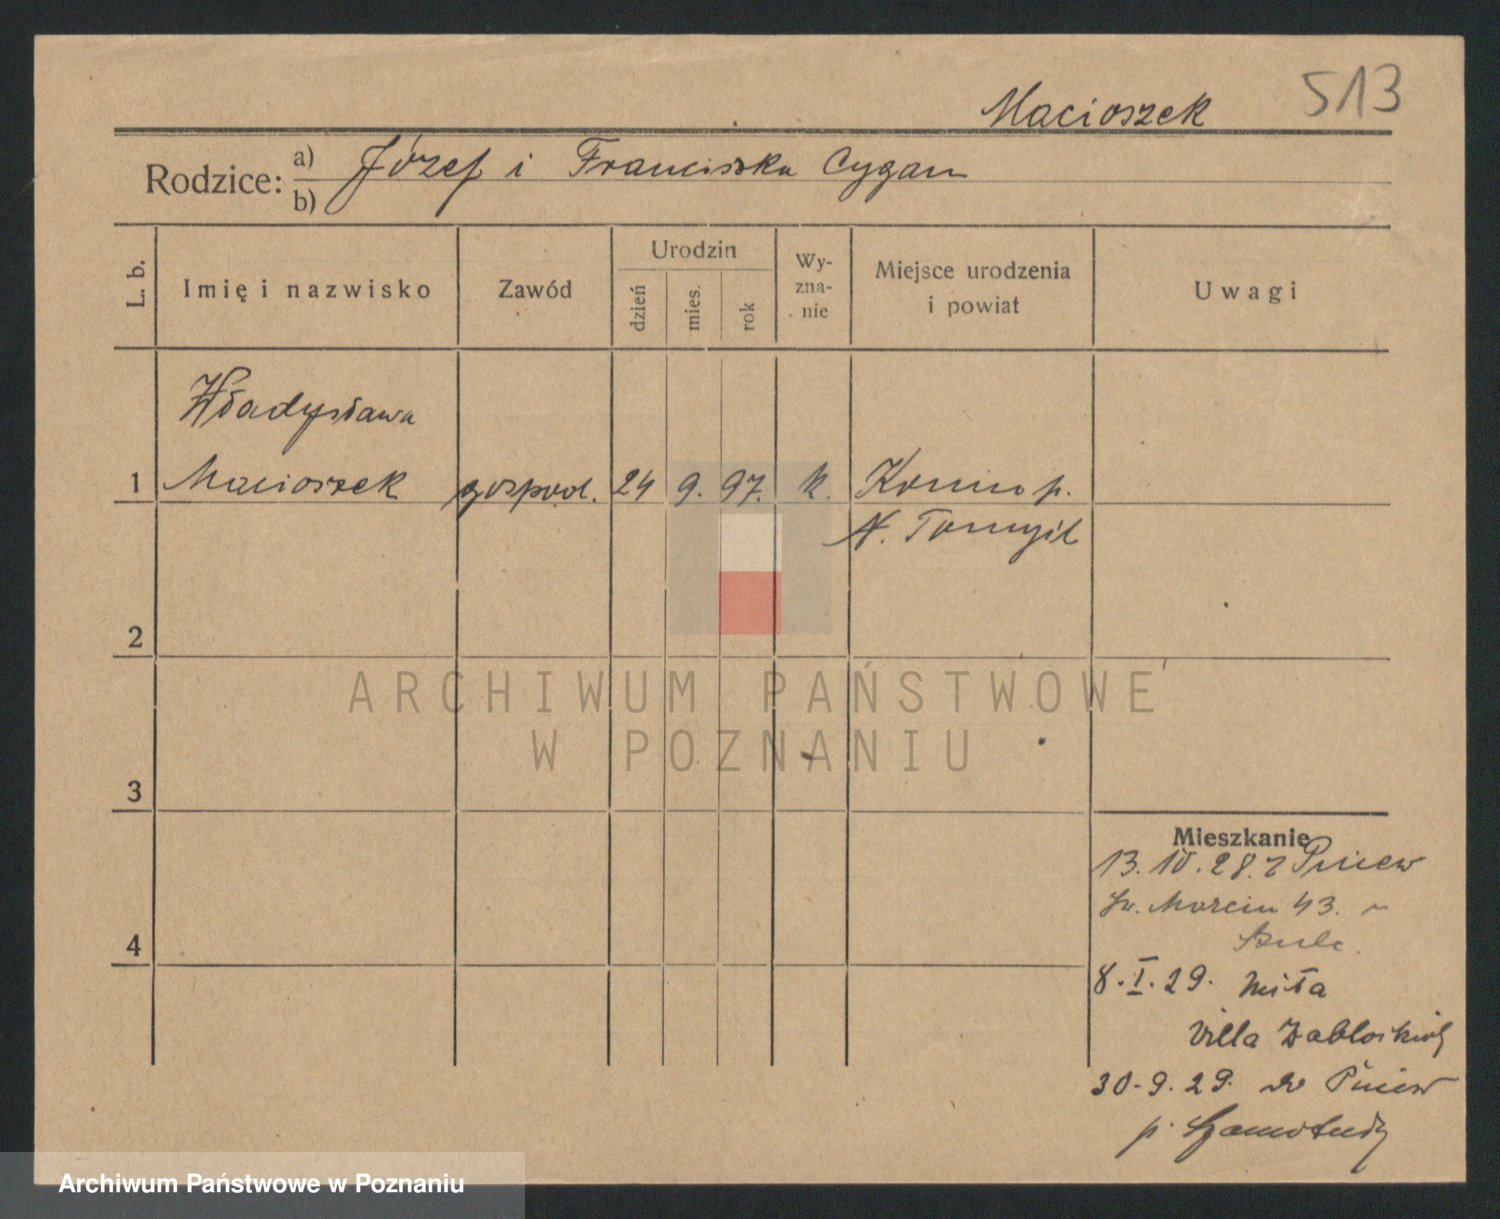 Macioszek 513
Rodzice: a) Józef i Franciszka Cygan
b)
L. b. Imię i nazwisko Zawód Urodzin dzień mies. rok Wy-zna-nie Miejsce urodzenia i powiat Uwagi
Władysława
1 Macioszek gospod. 24 9. 97. k. Konino p.
N. Tomyśl
2
ARCHIWUM PAŃSTWOWE
W POZNANIU
3
Mieszkanie
13. IV. 28. z Pniew
Św. Marcin 43.
4
8. I. 29. Miła
Villa Zabłockich
30-9.29. do Pniew
p. Szamotuły
Archiwum Państwowe w Poznaniu